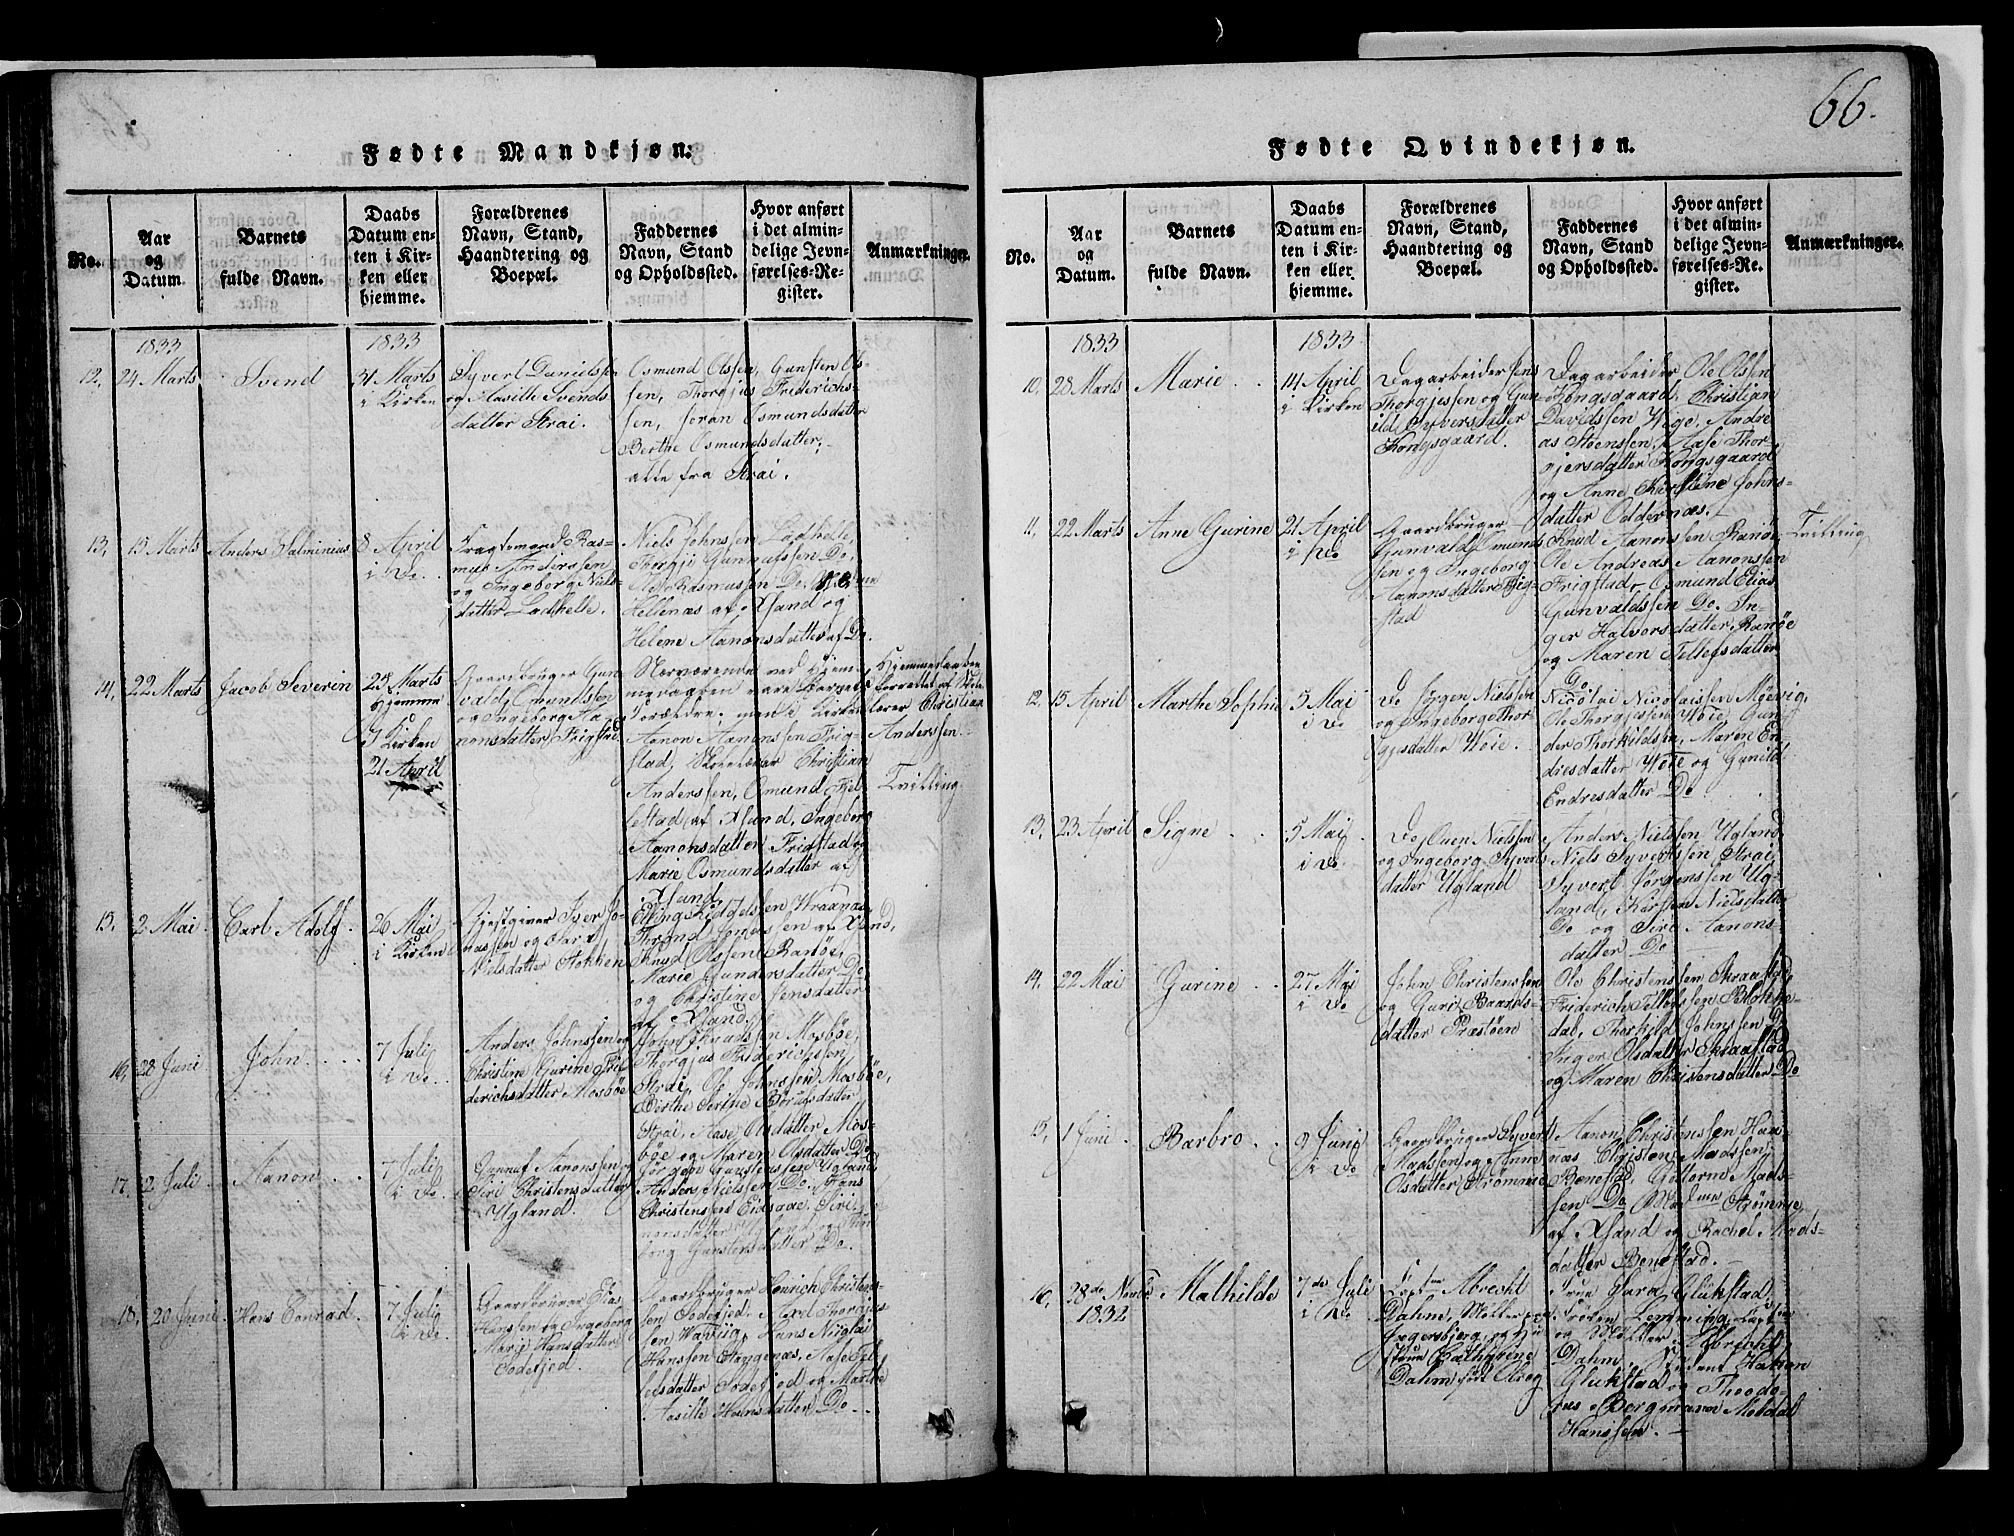 66.
Fødte Mandkjøn:
No.
Aar
og
Datum.
Barnets
fulde Navn.
Daabs
Datum en-
ten i Kir-
ken eller
hjemme.
Forældrenes
Navn, Stand,
Haandtering og
Boepæl.
Faddernes
Navn, Stand
og Opholdssted.
Hvor anført
i det almin-
delige Jevn-
førelses-Re-
gister.
Anmærkninger.
1833
1833
12.
24 Marts
Svend
31 Marts
i Kirken
Syvert Daniels
og Aasille Svends
datter Strai.
Osmund Olssen, Gunsten Ols
sen, Thorgjus Friderichs
sen, Joran Osmundsdatter
Berthe Osmundsdatter,
alle fra Strai.
13.
15 Marts
Anders Salminius
8 April
i Do.
Fragtemand Ras-
mus Anderssen
og Ingeborg Niels-
datter Ladhelle.
Niels Johnssen Ladhelle,
Thorgji Gunnufssen Do.
Ole Rasmussen Do.
Hellenæs af Xsand og
Helene Aanonsdatter af Do.
14.
22 Marts
Jacob Severin
28 Marts
Hjemme
I Kirken
21 April
Gaardbruger Gun
vald Osmundssen
og Ingeborg Aa-
nonsdatter Frigstad
Nærværende ved Hjem-
medaaben vare Barnets
Forældre, men i Kirken
Aanon Aanonssen Frig-
stad, Skolelærer Christian
Anderssen, Osmund Fjel-
lestad af Xsand, Ingeborg
Aanonsdatter Frigstad og
Marie Osmundsdatter af
Xsand.
Hjemmedaaben
forrettet af Skole
lærer Christian
Anderssen.
Tvilling
15.
2 Mai.
Carl Adolf.
26 Mai
i Kirken
Gjestgiver Iver Jo-
nassen og Sara
Nielsdatter Stokken
Elling Kiddelssen Wraanæs
Thrond Jonassen af Xsand,
Knud Olssen Ranöe,
Marie Gundersdatter Do
og Christine Jensdatter
af Xsand.
16.
28 Juni
John.
7 Juli
i Do.
Anders Johnssen og
Christine Gurine Fri-
derichsdatter Mosböe
John Knudssen Mosböe,
Thorgjus Friderichssen
Strai, Ole Johnssen Mosböe,
Berthe Serine
Strai, Aase Olsdatter Mos-
böe og Maren Olsdatter Do
17.
2 Juli
Aanon
7 Juli
i Do.
Gunnuf Aanonssen,
Siri Christensdatter
Ugland.
Jörgen Gunstenssen Ugland,
Anders Nielssen Do. Hans
Christenssen Eidsaae, Siri
nonsdatter Ugland og
borg Gunstensdatter Do.
18.
20 Juni
Hans Conrad.
7 Juli
i Do.
Gaardbruger Elias
Hanssen og Ingeborg
Marie Hansdatter
Sodefjed.
Gaardbruger Henrich Christens-
sen Sodefjed. Axel Thorgjus-
sen Waviig, Hans Niiglai
Hanssen Stangenæs, Aase Tel-
lefsdatter Sodefjed og Marthe
Aasille Hansdatter Do.
Fødte Qvindekjøn.
No.
Aar
og
Datum.
Barnets
fulde Navn.
Daabs
Datum en-
ten i Kir-
ken eller
hjemme.
Forældrenes
Navn, Stand,
Haandtering og
Boepæl.
Faddernes
Navn, Stand
og Opholdssted.
Hvor anført
i det almin-
delige Jevn-
førelses-Re.
gister.
Anmærkninger.
1833
1833
10.
28 Marts
Marie
14 April
i Kirken
Dagarbeider Jens
Thorgjussen og Gun-
ild Syversdatter
Kongsgaard.
Dagarbeider Ole Olssen
Kongsgaard, Christian
Davidssen Hege, Andre
as Steenssen, Aase Thor-
gjersdatter Kongsgaard
og Anne Kirstine Johns-
datter Oddernæs.
11.
22 Marts
Anne Gurine
21 April
i Do
Gaardbruger
Gunvald Osmunds
sen og Ingeborg
Aanonsdatter Frig-
stad
Knud Aanonssen Ranöe,
Ole Andreas Aanonssen
Frigstad, Osmund Elias
Gunvaldssen Do. In-
ger Halvorsdatter Ranöe
og Maren Tellefsdatter
Do
Tvilling
12.
15 April
Marthe Sophie
5 Mai
i Do
Do Jörgen Nielssen
og Ingeborg Thor-
gjusdatter Höie.
Nicolai Nicolaissen Möevig,
Ole Thorgjussen Höie, Gun
der Thorkildsen, Maren En
dresdatter Höie og Gunild
Endresdatter Do
13.
23 April
Signe
5 Mai
i Do.
Do Ouen Nielssen
og Ingeborg Syverts
datter Ugland
Anders Nielssen Ugland,
Niels Syvertssen Strai,
Syvert Jörgenssen Ug-
land, Kirsten Nielsdatter
Do og Siri Aanons-
datter Do
14.
22 Mai
Gurine
27 Mai
i Do
John Christenssen
og Guri Baards-
datter Præstöen
Ole Christenssen Skraastad,
Friderich Tellefssen Blokke-
dal, Thorkild Johnssen Do
Inger Olsdatter Skraastad
og Maren Christensdatter Do
15.
1 Juni
Barbro
9 Juni
i Do
Gaardbruger Syvert
Madssen og Anne
Olsdatter Strömme
Aanon Christenssen Haa-
næs, Christen Madssen
Benestad, Guttorm Mads-
sen Do, Strömme,
af Xsand og Rachel Mads-
datter Benestad.
16.
28de Novbr
1832
Mathilde
7de Juli
i Do
Capt Abrecht
Dahm, Möller paa
Ingersbjerg, og Hu
strue Cathrine
Dahm föd Krog
Frue Sara Glükstad,
Fröken Lemming, Captn
og Möller Abrecht
Dahm, Student Hakon
Glükstad og Theodo-
rus Bergmann Meldal
Hanssen.